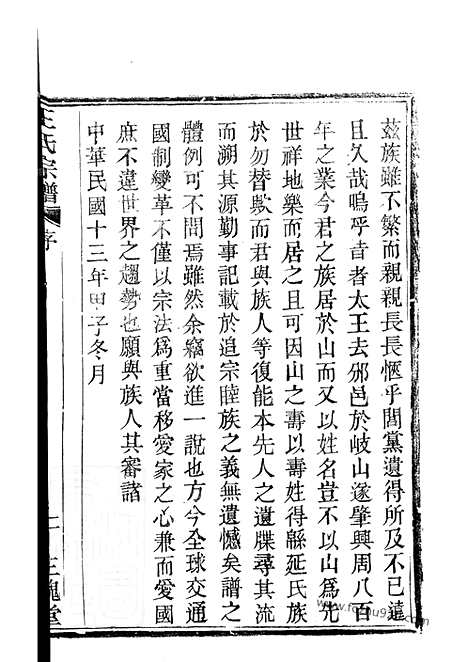 茲族雖不繁而親親長長愜乎閭黨遺得所及不已遠
且久哉嗚乎昔者太王去邠邑於岐山遂肇興周八百
年之業今君之族居於山而又以姓名豈不以山爲先
世祥地樂而居之且可因山之壽以壽姓得緜延氏族
於勿替歟而君與族人等復能本先人之遺牒尋其流
而溯其源勤事記載於追宗睦族之義無遺憾矣譜之
體例可不問焉雖然余竊欲進一說也方今全球交通
國制變革不僅以宗法爲重當移愛家之心兼而愛國
庶不違世界之趨勢也願與族人其審諸
中華民國十三年甲子冬月
王氏宗譜 序
三槐堂